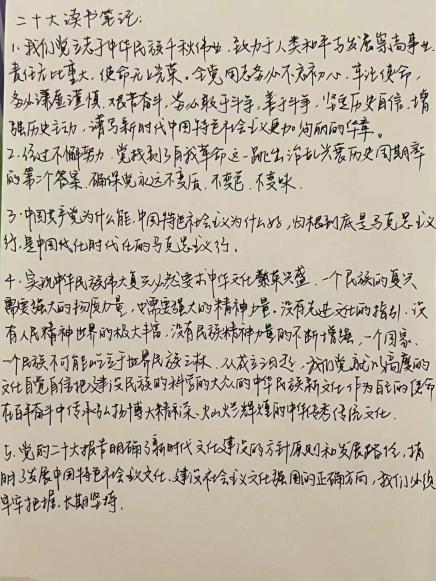 二十大读书笔记:
1.我们党立志于中华民族千秋伟业,致力于人类和平与发展崇高事业,
责任无比重大,使命无上光荣。全党同志务必不忘初心、牢记使命,
务必谦虚谨慎、艰苦奋斗,务必敢于斗争、善于斗争,坚定历史自信,增
强历史主动,谱写新时代中国特色社会主义更加绚丽的华章。
2.经过不懈努力,党找到了自我革命这一跳出治乱兴衰历史周期率
的第二个答案,确保党永远不变质、不变色、不变味.
3.中国共产党为什么能,中国特色社会主义为什么好,归根到底是马克思主义
行,是中国化时代化的马克思主义行.
4.实现中华民族伟大复兴必然要求中华文化繁荣兴盛.一个民族的复兴
需要强大的物质力量,也需要强大的精神力量.没有先进文化的指引,没
有人民精神世界的极大丰富,没有民族精神力量的不断增强,一个国家、
一个民族不可能屹立于世界民族之林.从成立之日起,我们党就以高度的
文化自觉自信把建设民族的科学的大众的中华民族新文化作为自己的使命
在百年奋斗中传承弘扬博大精深、灿烂辉煌的中华优秀传统文化.
5.党的二十大报告明确了新时代文化建设的方针原则和发展路径,指
明了发展中国特色社会主义文化、建设社会主义文化强国的正确方向,我们必须
牢牢把握、长期坚持.